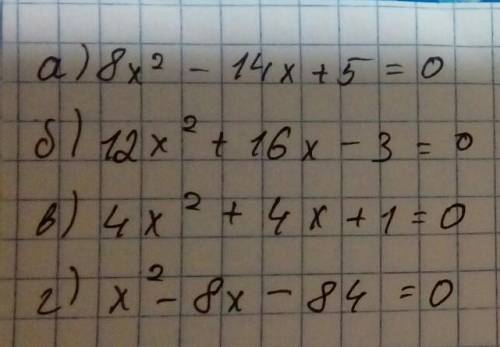 а) 8x² - 14x + 5 = 0
б) 12x² + 16x - 3 = 0
в) 4x² + 4x + 1 = 0
г) x² - 8x - 84 = 0